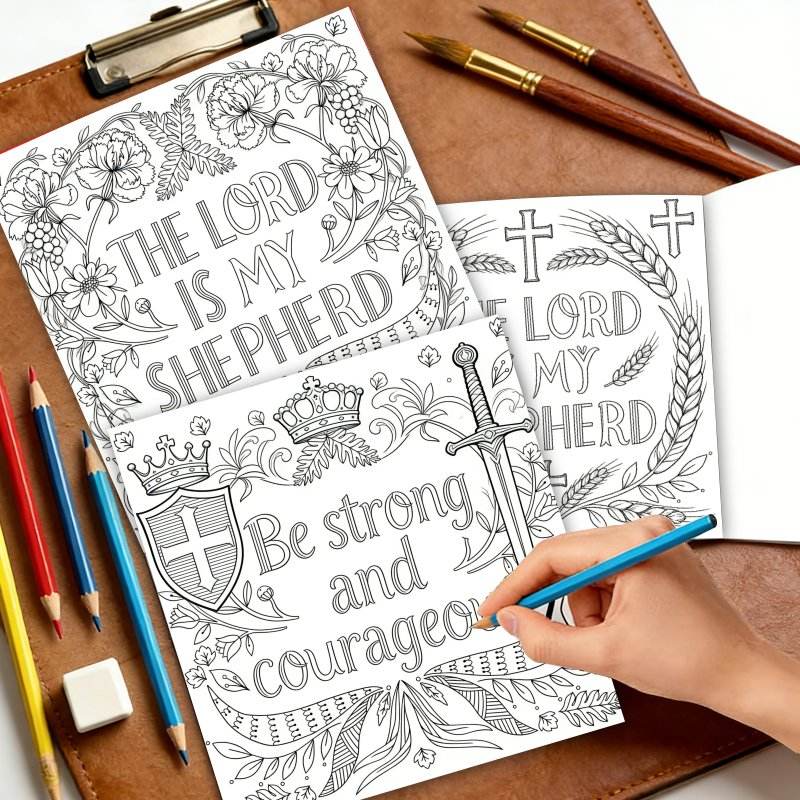 THE LORD
IS MY
SHEPHERD
LORD
MY
Be strong
and
courageou